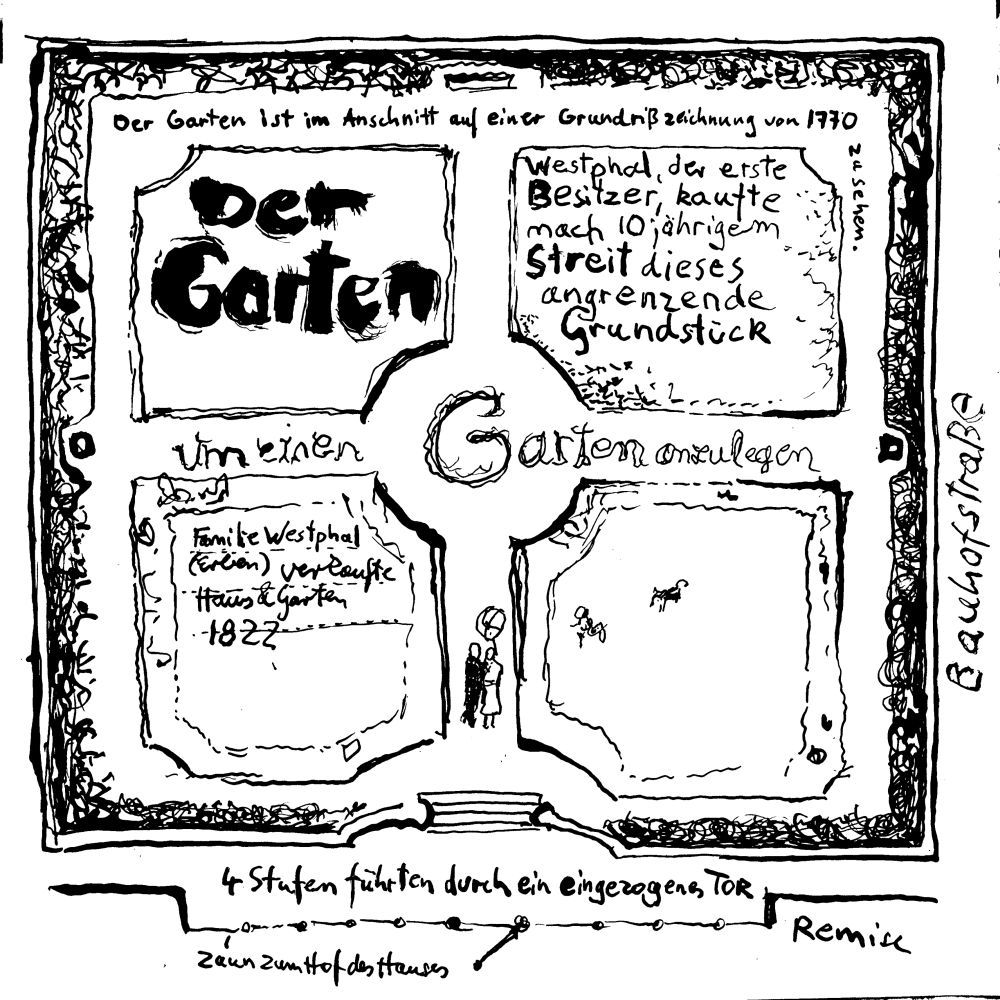 Der Garten ist im Anschnitt auf einer Grundrißzeichnung von 1770
zu sehen.
Der
Garten
Westphal, der erste
Besitzer, kaufte
nach 10 jährigem
Streit dieses
angrenzende
Grundstück
um einen Garten anzulegen
Familie Westphal
(Erben) verkaufte
Haus & Garten
1822
Bauhofstraße
4 Stufen führten durch ein eingezogenes TOR
Remise
Zaun zum Hof des Hauses